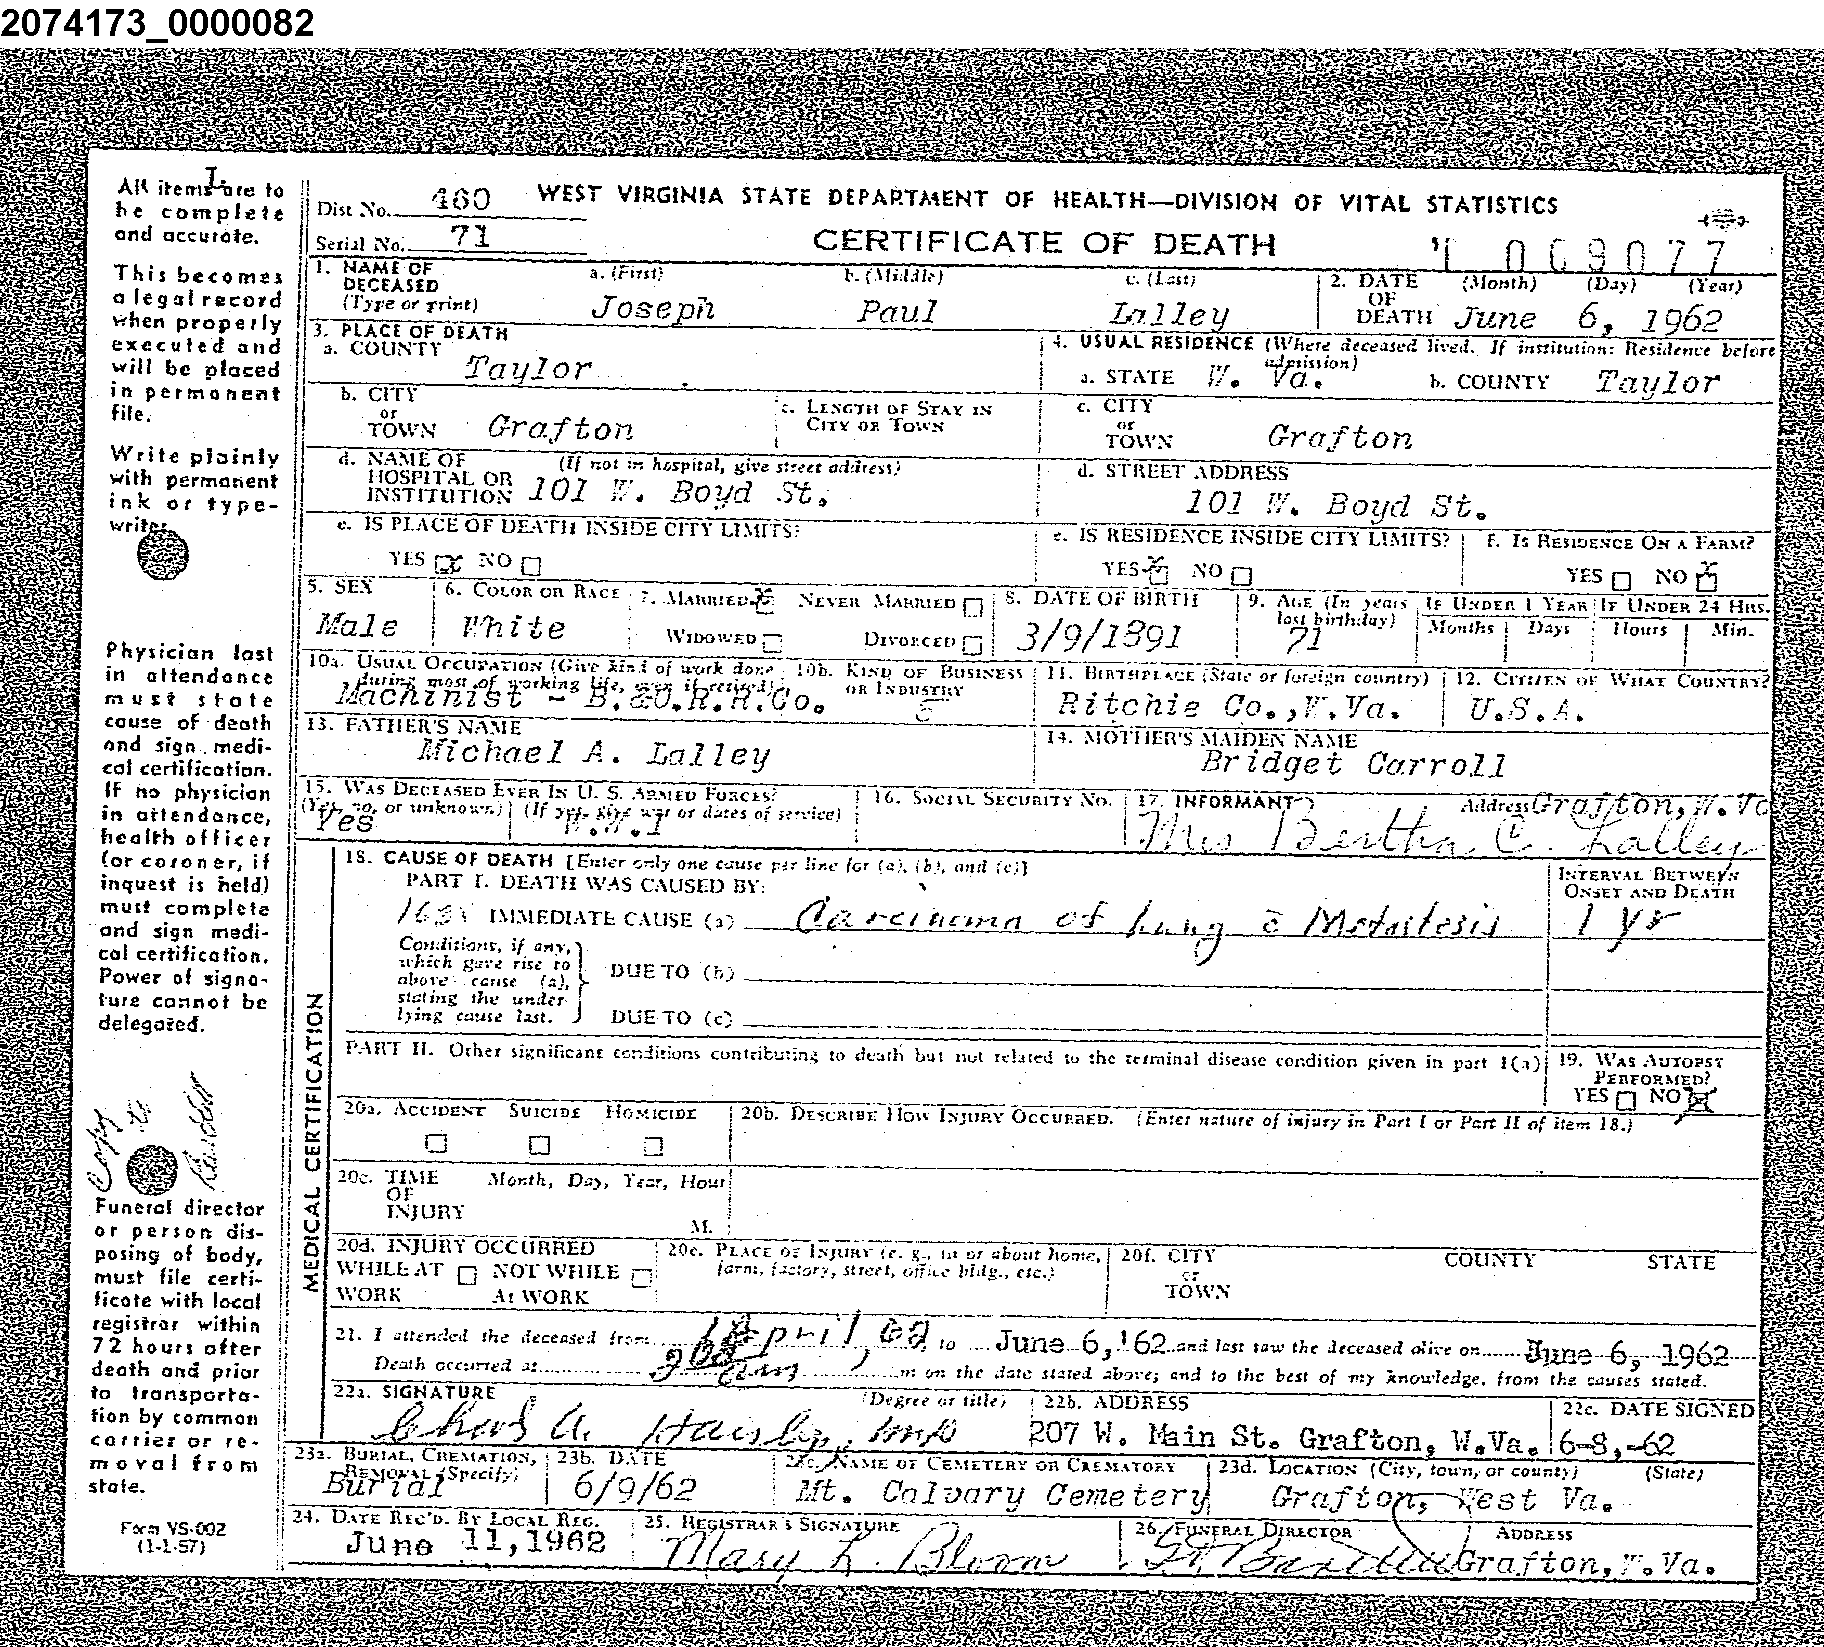 2074173_0000082
All items are to
be complete
and accurate.
This becomes
a legal record
when properly
executed and
will be placed
in permanent
file.
Write plainly
with permanent
ink or type-
writer
Physician last
in attendance
must state
cause of death
and sign medi-
cal certification.
If no physician
in attendance,
health officer
(or coroner, if
inquest is held)
must complete
and sign medi-
cal certification.
Power of signa-
ture cannot be
delegated.
Copy to
Funeral director
or person dis-
posing of body,
must file certi-
ficate with local
registrar within
72 hours after
death and prior
to transporta-
tion by common
carrier or re-
moval from
state.
Form VS-002
(1-1-57)
Dist No. 460 WEST VIRGINIA STATE DEPARTMENT OF HEALTH—DIVISION OF VITAL STATISTICS
Serial No. 71 CERTIFICATE OF DEATH 009077
1. NAME OF DECEASED (Type or print) a. (First) b. (Middle) c. (Last) 2. DATE OF DEATH (Month) (Day) (Year)
Joseph Paul Lalley June 6, 1962
3. PLACE OF DEATH 4. USUAL RESIDENCE (Where deceased lived. If institution: Residence before admission)
a. COUNTY Taylor a. STATE W. Va. b. COUNTY Taylor
b. CITY or TOWN Grafton c. LENGTH OF STAY IN CITY OR TOWN c. CITY or TOWN Grafton
d. NAME OF HOSPITAL OR INSTITUTION (If not in hospital, give street address) 101 W. Boyd St. d. STREET ADDRESS 101 W. Boyd St.
e. IS PLACE OF DEATH INSIDE CITY LIMITS? e. IS RESIDENCE INSIDE CITY LIMITS? f. IS RESIDENCE ON A FARM?
YES X NO YES X NO YES NO X
5. SEX 6. COLOR OR RACE 7. MARRIED X NEVER MARRIED 8. DATE OF BIRTH 9. AGE (In years last birthday) IF UNDER 1 YEAR IF UNDER 24 HRS.
Male White WIDOWED DIVORCED 3/9/1891 71 Months Days Hours Min.
10a. USUAL OCCUPATION (Give kind of work done during most of working life, even if retired) 10b. KIND OF BUSINESS OR INDUSTRY 11. BIRTHPLACE (State or foreign country) 12. CITIZEN OF WHAT COUNTRY?
Machinist - B.&O.R.R.Co. 5 Ritchie Co.,W.Va. U.S.A.
13. FATHER'S NAME 14. MOTHER'S MAIDEN NAME
Michael A. Lalley Bridget Carroll
15. WAS DECEASED EVER IN U. S. ARMED FORCES? 16. SOCIAL SECURITY NO. 17. INFORMANT Address Grafton, W. Va
(Yes, no, or unknown) (If yes, give war or dates of service)
Yes W.W.1 Mrs Bertha C. Lalley
MEDICAL CERTIFICATION
18. CAUSE OF DEATH [Enter only one cause per line for (a), (b), and (c)] INTERVAL BETWEEN ONSET AND DEATH
PART I. DEATH WAS CAUSED BY:
IMMEDIATE CAUSE (a) Carcinoma of Lung c̄ Metastesis 1 yr
Conditions, if any, which gave rise to above cause (a), stating the under lying cause last.
DUE TO (b)
DUE TO (c)
PART II. Other significant conditions contributing to death but not related to the terminal disease condition given in part I(a) 19. WAS AUTOPSY PERFORMED?
YES NO X
20a. ACCIDENT SUICIDE HOMICIDE 20b. DESCRIBE HOW INJURY OCCURRED. (Enter nature of injury in Part I or Part II of item 18.)
20c. TIME OF INJURY Month, Day, Year, Hour M.
20d. INJURY OCCURRED 20e. PLACE OF INJURY (e. g., in or about home, farm, factory, street, office bldg., etc.) 20f. CITY or TOWN COUNTY STATE
WHILE AT WORK NOT WHILE At WORK
21. I attended the deceased from 1 April, 62 to June 6, '62 and last saw the deceased alive on June 6, 1962
Death occurred at m on the date stated above; and to the best of my knowledge, from the causes stated.
22a. SIGNATURE (Degree or title) 22b. ADDRESS 22c. DATE SIGNED
Chas A. MD 207 W. Main St. Grafton, W.Va. 6-8,-62
23a. BURIAL, CREMATION, REMOVAL (Specify) 23b. DATE 23c. NAME OF CEMETERY OR CREMATORY 23d. LOCATION (City, town, or county) (State)
Burial 6/9/62 Mt. Calvary Cemetery Grafton, West Va.
24. DATE REC'D. BY LOCAL REG. 25. REGISTRAR'S SIGNATURE 26. FUNERAL DIRECTOR ADDRESS
June 11, 1962 Mary L. Bloom Grafton, W.Va.